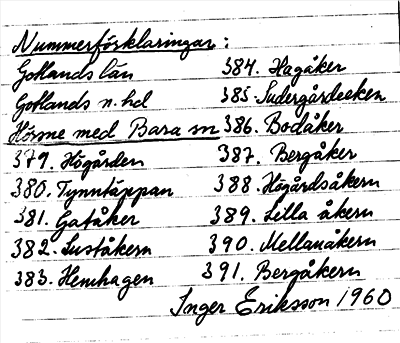 Nummerförklaringar:
Gotlands län
Gotlands n. hd
Hörsne med Bara sn
379. Högården
380. Tynntäppan
381. Gatåker
382. Luståkern
383. Hemhagen
384. Hagåker
385. Sudergårdeeken
386. Bodåker
387. Bergåker
388. Högårdsåkern
389. Lilla åkern
390. Mellanåkern
391. Bergåkern
Inger Eriksson 1960